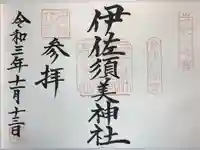 伊佐須美神社
参拝
令和三年十一月十三日